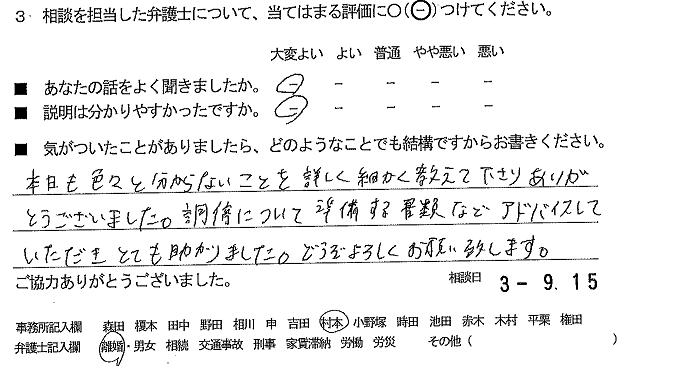 3 相談を担当した弁護士について、当てはまる評価に○(⊖)つけてください。
大変よい よい 普通 やや悪い 悪い
■ あなたの話をよく聞きましたか。 − − − − −
■ 説明は分かりやすかったですか。 − − − − −
■ 気がついたことがありましたら、どのようなことでも結構ですからお書きください。
本日も色々と分からないことを詳しく細かく教えて下さりありが
とうございました。調停について準備する書類などアドバイスして
いただきとても助かりました。どうぞよろしくお願い致します。
ご協力ありがとうございました。 相談日 3-9.15
事務所記入欄 森田 榎本 田中 野田 相川 申 吉田 村本 小野塚 時田 池田 赤木 木村 平栗 権田
弁護士記入欄 離婚・男女 相続 交通事故 刑事 家賃滞納 労働 労災 その他( )